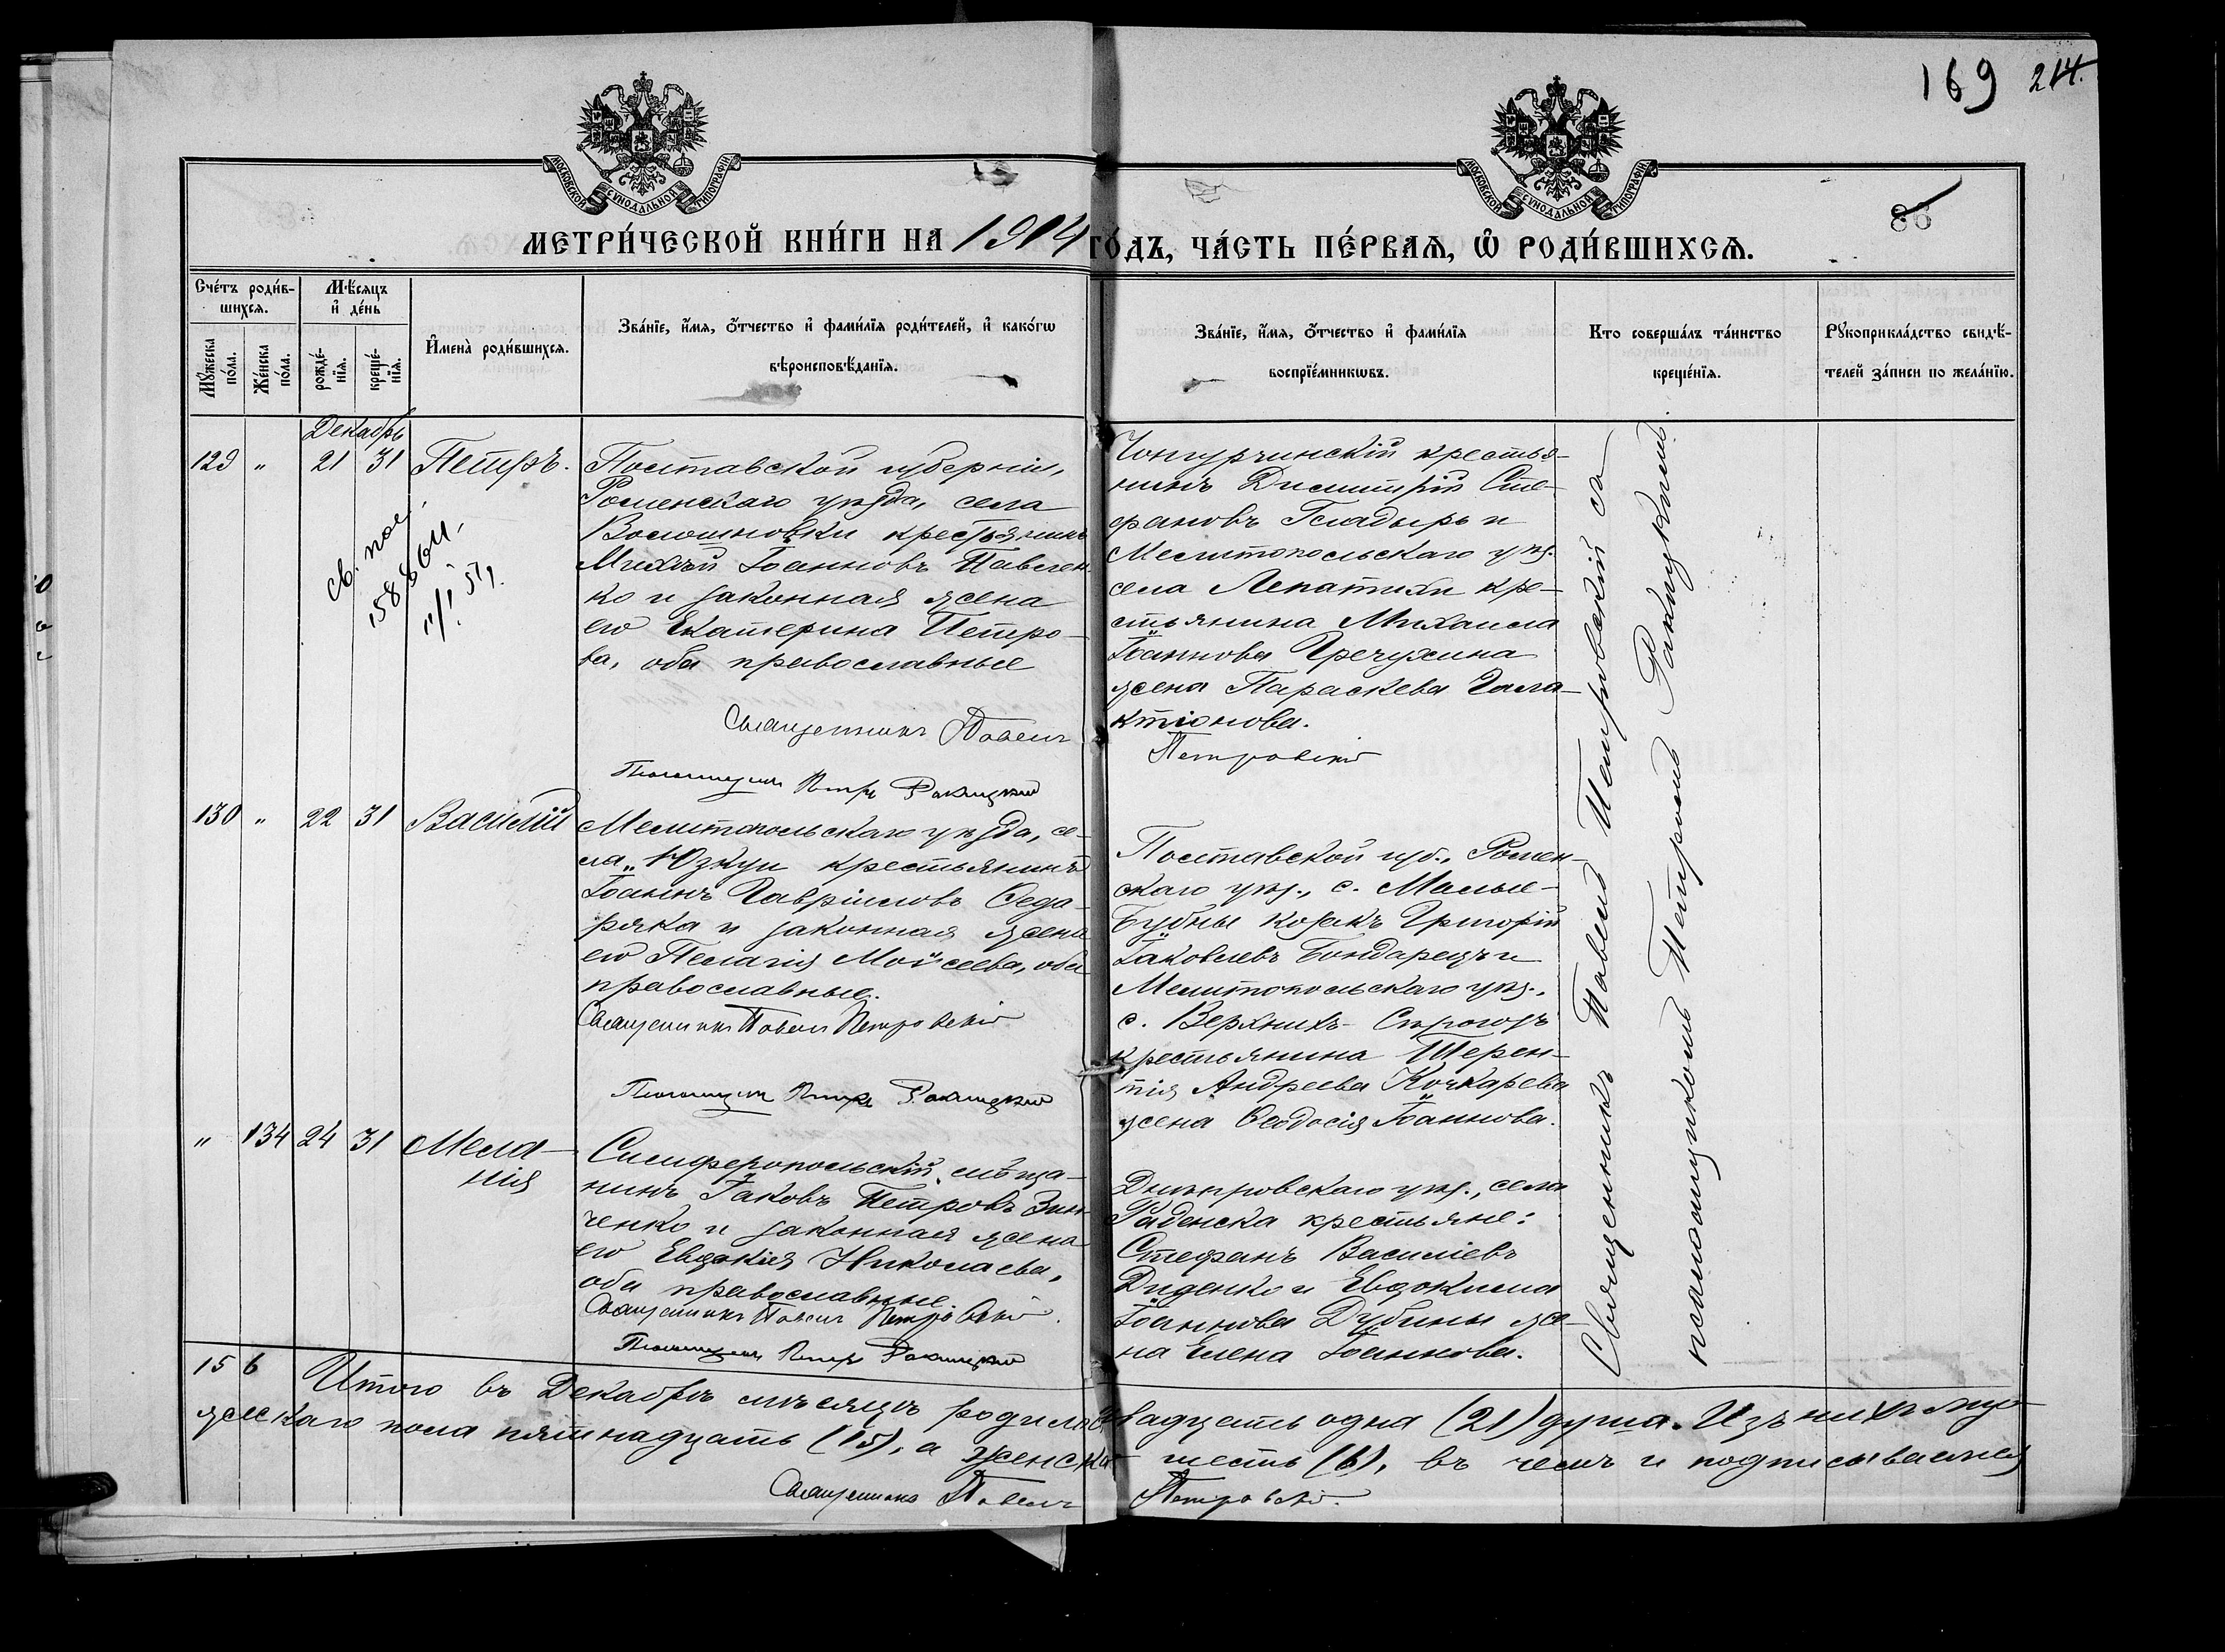 169 214.
МОСКОВСКОЙ СѴНОДАЛЬНОЙ ТИПОГРАФІИ.
МОСКОВСКОЙ СѴНОДАЛЬНОЙ ТИПОГРАФІИ.
86
МЕТРИ́ЧЕСКОЙ КНИ́ГИ НА 1914 ГО́ДЪ, ЧА́СТЬ ПЕ́РВАѦ, Ѡ҆ РОДИ́ВШИХСѦ.
Сче́тъ роди́в-
шихсѧ.
Мѹ́жеска по́ла.
Же́нска по́ла.
Мѣ́сѧцъ
и҆ де́нь
рожде́-
нїѧ.
креще́-
нїѧ.
И҆мена̀ роди́вшихсѧ.
Зва́нїе, и҆́мѧ, ѻ҆́тчество и҆ фами́лїѧ роди́телей, и҆ како́гѡ
вѣроисповѣ́данїѧ.
Зва́нїе, и҆́мѧ, ѻ҆́тчество и҆ фами́лїѧ
воспрїе́мникѡвъ.
Кто соверша́лъ та́инство
креще́нїѧ.
Рѹкоприкла́дство свидѣ́-
телей за́писи по жела́нїю.
Декабрь
129 " 21 31 Петръ.
Полтавской губерніи,
Роменскаго уѣзда, села
Волошновки крестьянинъ
Михаій Іоанновъ Павлен-
ко и законная жена
его Екатерина Петро-
ва, оба православные
Священникъ Павелъ Петровскій
Псаломщикъ Петръ Ракицкій
св. пол.
Чонгурчинскій крестья-
нинъ Димитрій Сте-
фановъ Гладырь и
Мелитопольскаго уѣз.
села Лепатихи кре-
стьянина Михаила
Іоаннова Гречухина
жена Параскева Гала-
ктіонова.
130 " 22 31 Василій
Мелитопольскаго уѣзда, се-
ла "Юзкуи крестьянинъ
Іоаннъ Гавріиловъ Ѳедо-
ряка и законная жена
его Пелагія Моѵсеева, оба
православные.
Священникъ Павелъ Петровскій
Псаломщикъ Петръ Ракицкій
Полтавской губ., Ромен-
скаго уѣз., с. Малые-
Бубны козакъ Григорій
Іаковлевъ Бондарецъ и
Мелитопольскаго уѣз.,
с. Верхнихъ-Сѣрогозъ
крестьянина Терен-
тія Андреева Кочкарева
жена Ѳеодосія Іоаннова.
" 134 24 31 Мела-
нія
Симферопольскій мѣща-
нинъ Іаковъ Петровъ Зин-
ченко и законная жена
его Евдокія Николаева,
оба православные.
Священникъ Павелъ Петровскій.
Псаломщикъ Петръ Ракицкій
Днѣпровскаго уѣз., села
Раденска крестьяне:
Стефанъ Василіевъ
Диденко и Евдокима
Іоаннова Дубины же-
на Елена Іоаннова.
Священникъ Павелъ Петровскій со
псаломщикомъ Петромъ Ракицкимъ.
15 6 Итого въ Декабрѣ мѣсяцѣ родилось двадцать одна (21) душа. Изъ нихъ му-
жескаго пола пятнадцать (15), а женска- шесть (6), въ чемъ и подписываемся
Священникъ Павелъ Петровскій.